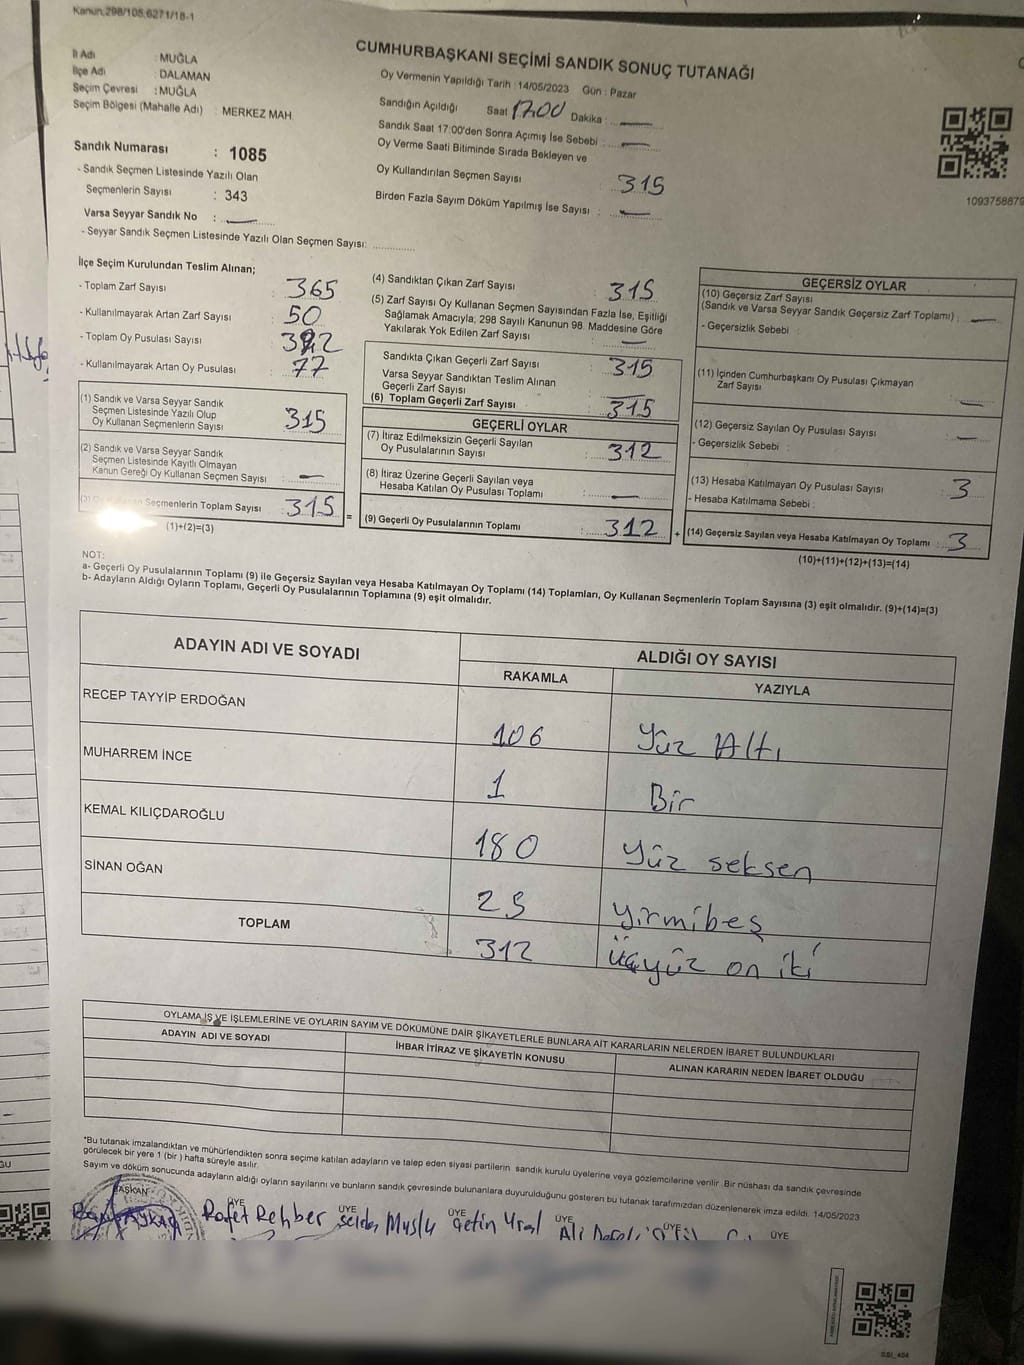 Kanun,298/105,6271/18-1
CUMHURBAŞKANI SEÇİMİ SANDIK SONUÇ TUTANAĞI
İl Adı : MUĞLA
İlçe Adı : DALAMAN
Seçim Çevresi : MUĞLA
Seçim Bölgesi (Mahalle Adı) : MERKEZ MAH.
Oy Vermenin Yapıldığı Tarih : 14/05/2023 Gün : Pazar
Sandığın Açıldığı Saat 17.00 Dakika : —
Sandık Saat 17:00'den Sonra Açımış İse Sebebi : —
Oy Verme Saati Bitiminde Sırada Bekleyen ve
Oy Kullandırılan Seçmen Sayısı : 315
Birden Fazla Sayım Döküm Yapılmış İse Sayısı : —
1093758879
Sandık Numarası : 1085
- Sandık Seçmen Listesinde Yazılı Olan
Seçmenlerin Sayısı : 343
Varsa Seyyar Sandık No : —
- Seyyar Sandık Seçmen Listesinde Yazılı Olan Seçmen Sayısı:
İlçe Seçim Kurulundan Teslim Alınan;
- Toplam Zarf Sayısı : 365
- Kullanılmayarak Artan Zarf Sayısı : 50
- Toplam Oy Pusulası Sayısı : 392
- Kullanılmayarak Artan Oy Pusulası : 77
(1) Sandık ve Varsa Seyyar Sandık
Seçmen Listesinde Yazılı Olup
Oy Kullanan Seçmenlerin Sayısı : 315
(2) Sandık ve Varsa Seyyar Sandık
Seçmen Listesinde Kayıtlı Olmayan
Kanun Gereği Oy Kullanan Seçmen Sayısı : —
Seçmenlerin Toplam Sayısı : 315
(1)+(2)=(3)
(4) Sandıktan Çıkan Zarf Sayısı : 315
(5) Zarf Sayısı Oy Kullanan Seçmen Sayısından Fazla İse, Eşitliği
Sağlamak Amacıyla; 298 Sayılı Kanunun 98. Maddesine Göre
Yakılarak Yok Edilen Zarf Sayısı : —
Sandıkta Çıkan Geçerli Zarf Sayısı : 315
Varsa Seyyar Sandıktan Teslim Alınan
Geçerli Zarf Sayısı : —
(6) Toplam Geçerli Zarf Sayısı : 315
GEÇERLİ OYLAR
(7) İtiraz Edilmeksizin Geçerli Sayılan
Oy Pusulalarının Sayısı : 312
(8) İtiraz Üzerine Geçerli Sayılan veya
Hesaba Katılan Oy Pusulası Toplamı : —
= (9) Geçerli Oy Pusulalarının Toplamı : 312
GEÇERSİZ OYLAR
(10) Geçersiz Zarf Sayısı
(Sandık ve Varsa Seyyar Sandık Geçersiz Zarf Toplamı) : —
- Geçersizlik Sebebi :
(11) İçinden Cumhurbaşkanı Oy Pusulası Çıkmayan
Zarf Sayısı : —
(12) Geçersiz Sayılan Oy Pusulası Sayısı : —
- Geçersizlik Sebebi :
(13) Hesaba Katılmayan Oy Pusulası Sayısı : 3
- Hesaba Katılmama Sebebi :
+ (14) Geçersiz Sayılan veya Hesaba Katılmayan Oy Toplamı : 3
(10)+(11)+(12)+(13)=(14)
NOT:
a- Geçerli Oy Pusulalarının Toplamı (9) ile Geçersiz Sayılan veya Hesaba Katılmayan Oy Toplamı (14) Toplamları, Oy Kullanan Seçmenlerin Toplam Sayısına (3) eşit olmalıdır. (9)+(14)=(3)
b- Adayların Aldığı Oyların Toplamı, Geçerli Oy Pusulalarının Toplamına (9) eşit olmalıdır.
ADAYIN ADI VE SOYADI ALDIĞI OY SAYISI
RAKAMLA YAZIYLA
RECEP TAYYİP ERDOĞAN 106 Yüz Altı
MUHARREM İNCE 1 Bir
KEMAL KILIÇDAROĞLU 180 Yüz seksen
SİNAN OĞAN 25 Yirmibeş
TOPLAM 312 üçyüz on iki
OYLAMA İŞ VE İŞLEMLERİNE VE OYLARIN SAYIM VE DÖKÜMÜNE DAİR ŞİKAYETLERLE BUNLARA AİT KARARLARIN NELERDEN İBARET BULUNDUKLARI
ADAYIN ADI VE SOYADI İHBAR İTİRAZ VE ŞİKAYETİN KONUSU ALINAN KARARIN NEDEN İBARET OLDUĞU
*Bu tutanak imzalandıktan ve mühürlendikten sonra seçime katılan adayların ve talep eden siyasi partilerin sandık kurulu üyelerine veya gözlemcilerine verilir. Bir nüshası da sandık çevresinde
görülecek bir yere 1 (bir) hafta süreyle asılır.
Sayım ve döküm sonucunda adayların aldığı oyların sayılarını ve bunların sandık çevresinde bulunanlara duyurulduğunu gösteren bu tutanak tarafımızdan düzenlenerek imza edildi. 14/05/2023
BAŞKAN ÜYE ÜYE ÜYE ÜYE ÜYE ÜYE
AYKAÇ Rafet Rehber Selda Muslu Çetin Ural Ali